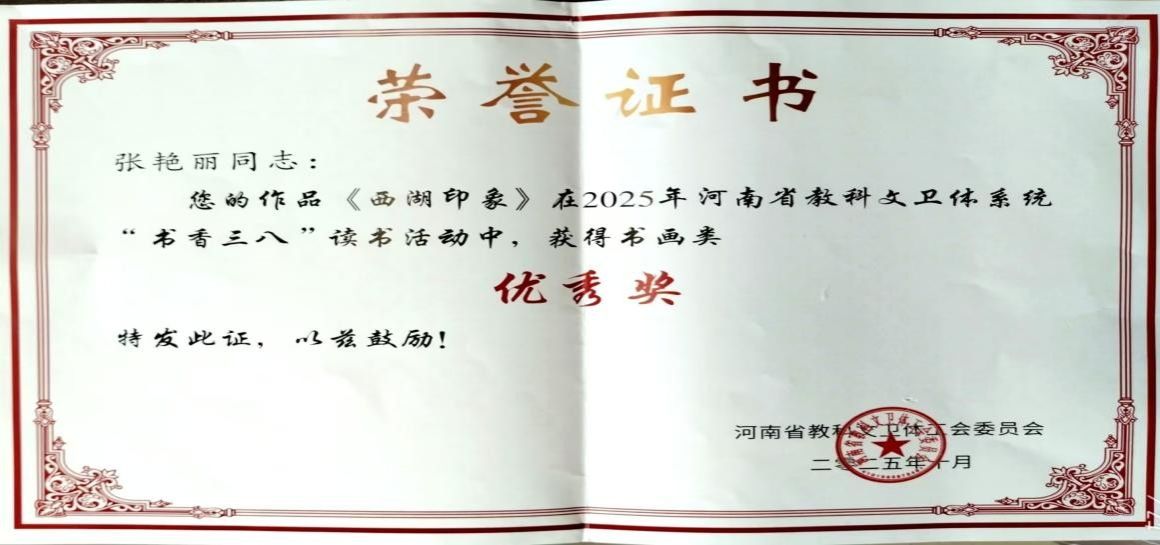 荣誉证书
张艳丽同志：
您的作品《西湖印象》在2025年河南省教科文卫体系统
“书香三八”读书活动中，获得书画类
优秀奖
特发此证，以兹鼓励！
河南省教科文卫体工会委员会
二〇二五年十月